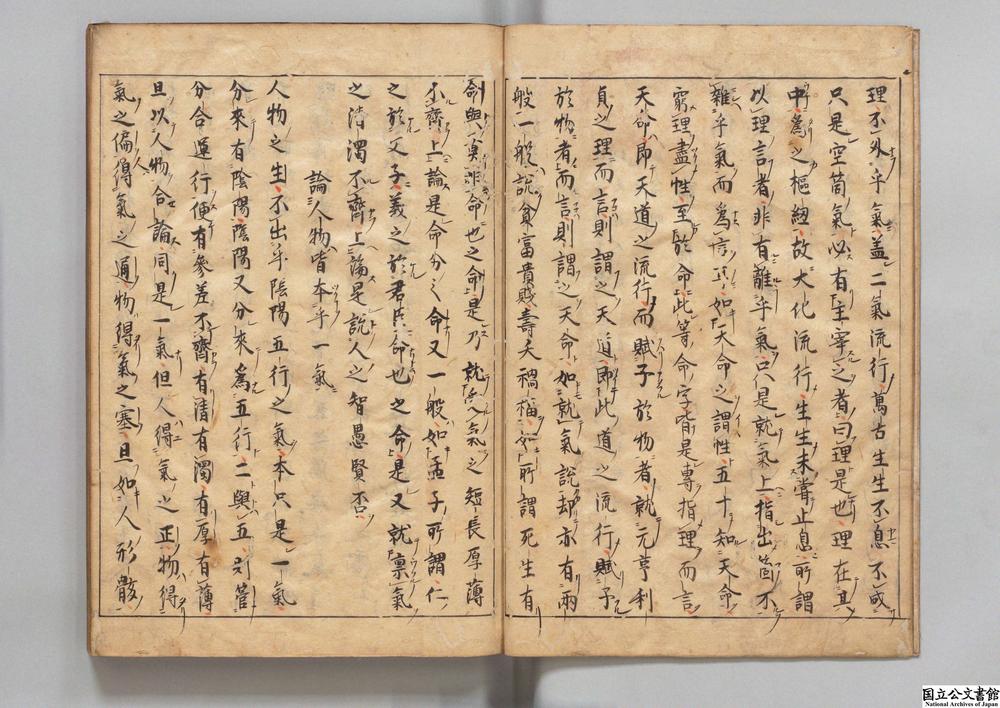 理不外乎氣盖二氣流行萬古生生不息不成
只是空箇氣必有主宰之者曰理是也理在其
中爲之樞紐故大化流行生生未甞止息所謂
以理言者非有離乎氣只是就氣上指出箇不
雜乎氣而爲言耳如天命之謂性五十知天命
窮理盡性至於命此等命字皆是專指理而言
天命即天道之流行而賦予於物者就元亨利
貞之理而言則謂之天道即此道之流行賦予
於物者而言則謂之天命如就氣說却亦有兩
般一般說貧富貴賤壽夭禍福如所謂死生有
命與莫非命也之命是乃就受氣之短長厚薄
不齊上論是命分之命又一般如孟子所謂仁
之於父子義之於君臣命也之命是又就禀氣
之清濁不齊上論是說人之智愚賢否
論人物皆本乎一氣
人物之生不出乎陰陽五行之氣本只是一氣
分來有陰陽陰陽又分來爲五行二與五則管
分合運行便有參差不齊有清有濁有厚有薄
且以人物合論同是一氣但人得氣之正物得
氣之偏人得氣之通物得氣之塞且如人形骸
国立公文書館
National Archives of Japan